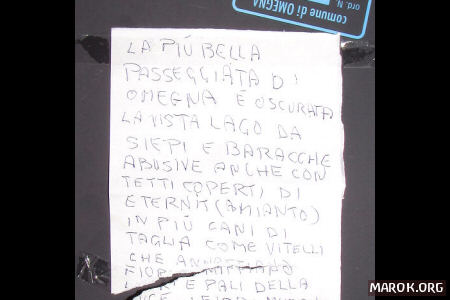 comune di OMEGNA
ord. N.
LA PIÙ BELLA
PASSEGGIATA DI
OMEGNA È OSCURATA
LA VISTA LAGO DA
SIEPI E BARACCHE
ABUSIVE ANCHE CON
TETTI COPERTI DI
ETERNIT (AMIANTO)
IN PIÙ CANI DI
TAGLIA COME VITELLI
CHE
E PALI DELLA
MAROK.ORG